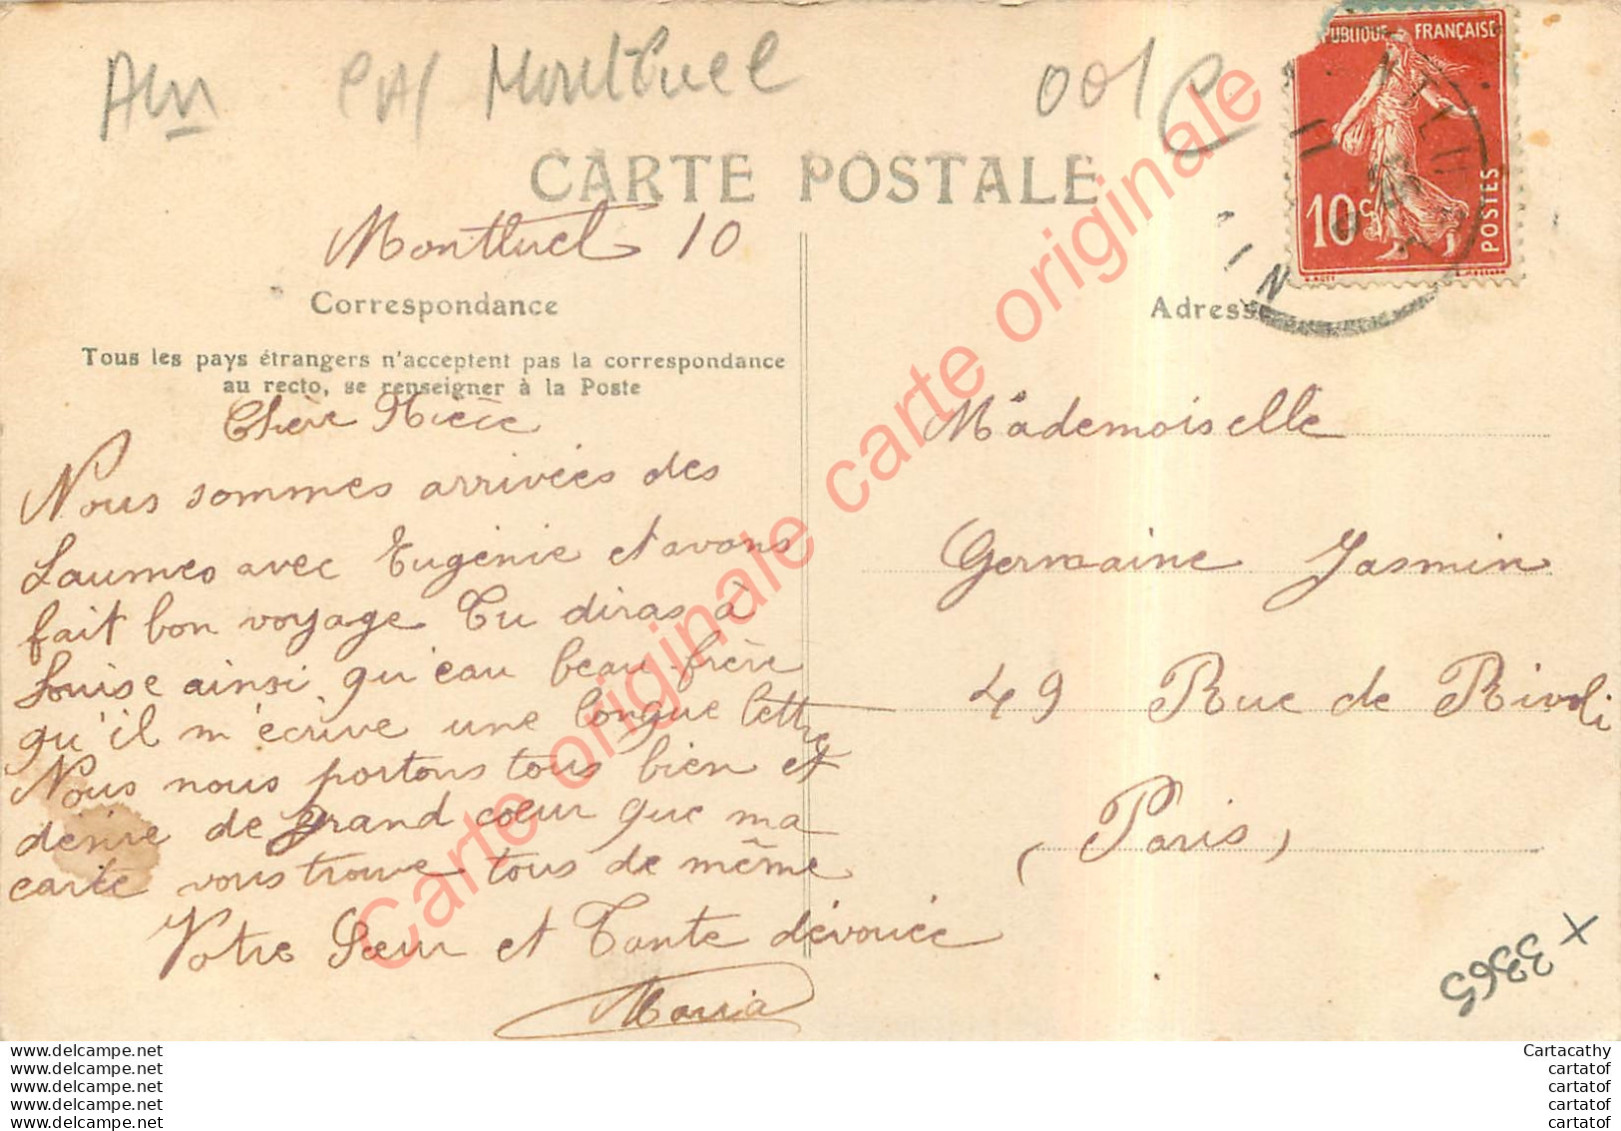 Ain Montluel 001
CARTE POSTALE
RÉPUBLIQUE FRANÇAISE
10c POSTES
AIN
Montluel 10
Correspondance
Tous les pays étrangers n'acceptent pas la correspondance
au recto, se renseigner à la Poste
Chère Nièce
Nous sommes arrivées des
Laumes avec Eugénie et avons
fait bon voyage Tu diras à
Louise ainsi qu'eau beau-frère
qu'il m'écrive une longue lettre
Nous nous portons tous bien et
désire de grand cœur que ma
carte vous trouve tous de même
Votre Sœur et Tante dévouée
Maria
Adresse
Mademoiselle
Germaine Jasmin
49 Rue de Rivoli
(Paris)
X 3365
Carte originale carte originale
www.delcampe.net
www.delcampe.net
www.delcampe.net
www.delcampe.net
www.delcampe.net
Cartacathy
cartatof
cartatof
cartatof
cartatof